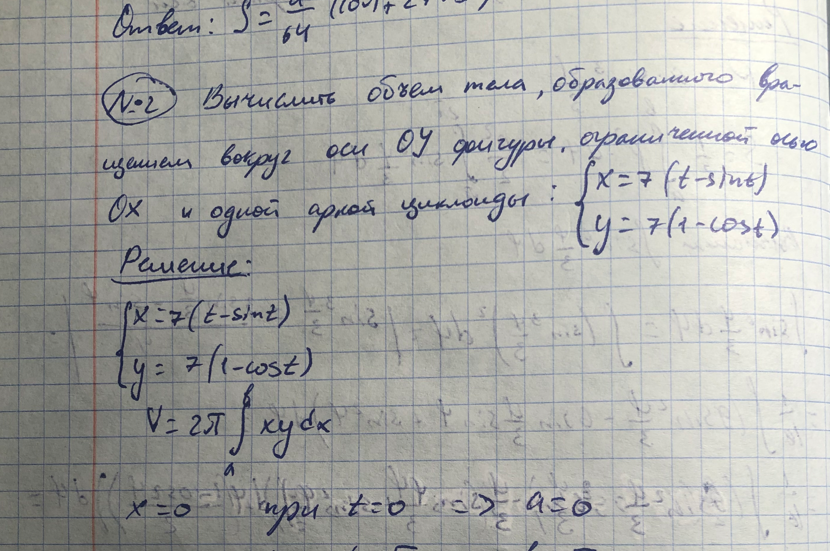 Ответ: S = /64
№2 Вычислить объем тела, образованного вра-
щением вокруг оси ОУ фигуры, ограниченной осью
ОХ и одной аркой циклоиды: { x = 7(t-sint)
y = 7(1-cost)
Решение:
{ x = 7(t-sint)
y = 7(1-cost)
V = 2π ∫ₐᵇ xydx
x = 0 при t = 0 => a = 0